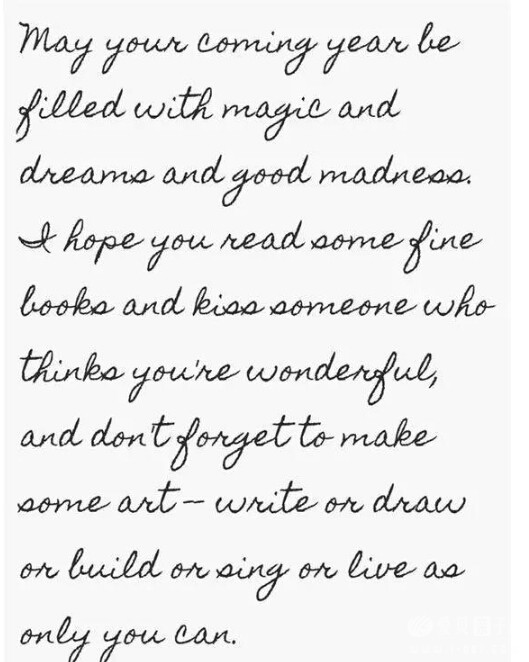 May your coming year be
filled with magic and
dreams and good madness.
I hope you read some fine
books and kiss someone who
thinks you're wonderful,
and don't forget to make
some art — write or draw
or build or sing or live as
only you can.